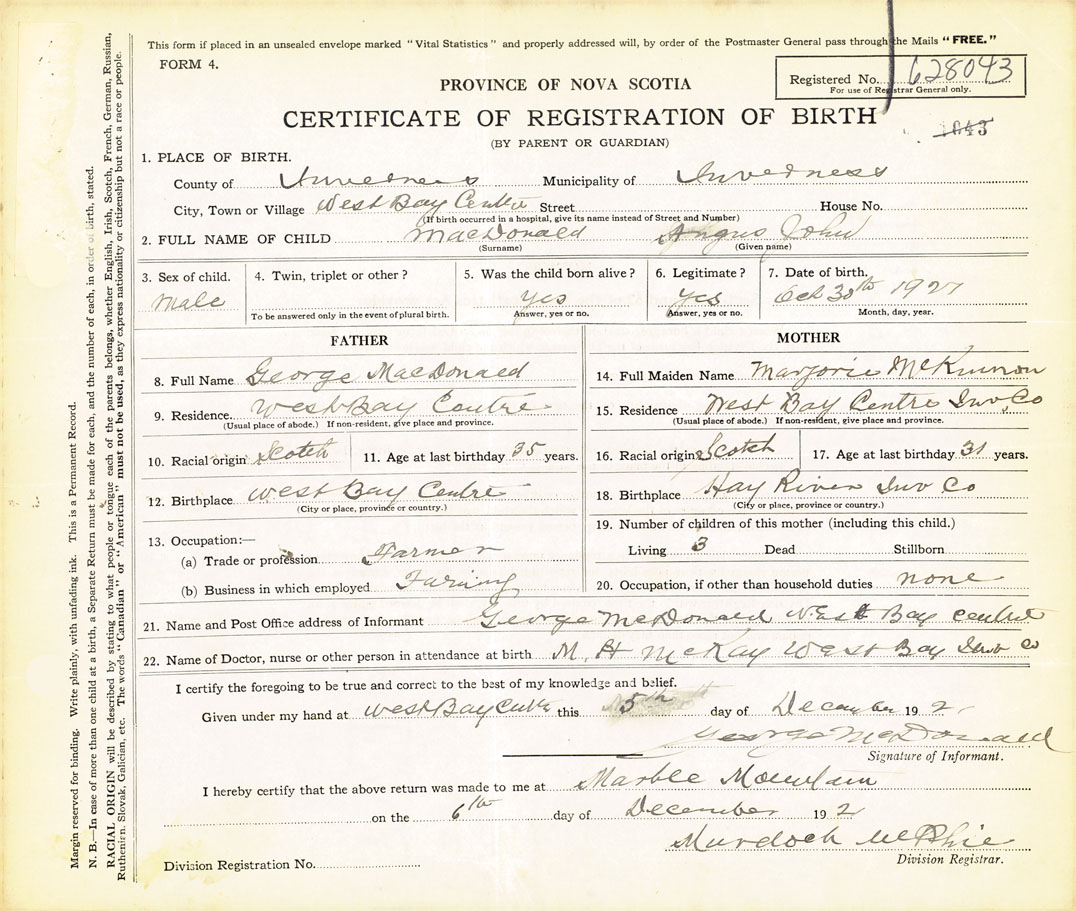 This form if placed in an unsealed envelope marked "Vital Statistics" and properly addressed will, by order of the Postmaster General pass through the Mails "FREE."
FORM 4.
Registered No. 628043
For use of Registrar General only.
PROVINCE OF NOVA SCOTIA
CERTIFICATE OF REGISTRATION OF BIRTH
1643
(BY PARENT OR GUARDIAN)
1. PLACE OF BIRTH.
County of Inverness Municipality of Inverness
City, Town or Village West Bay Centre Street House No.
(If birth occurred in a hospital, give its name instead of Street and Number)
2. FULL NAME OF CHILD MacDonald Angus John
(Surname) (Given name)
3. Sex of child. 4. Twin, triplet or other? 5. Was the child born alive? 6. Legitimate? 7. Date of birth.
Male yes yes Oct 30th 1927
To be answered only in the event of plural birth. Answer, yes or no. Answer, yes or no. Month, day, year.
FATHER
8. Full Name George MacDonald
9. Residence West Bay Centre
(Usual place of abode.) If non-resident, give place and province.
10. Racial origin Scotch 11. Age at last birthday 35 years.
12. Birthplace West Bay Centre
(City or place, province or country.)
13. Occupation:—
(a) Trade or profession Farmer
(b) Business in which employed Faring
MOTHER
14. Full Maiden Name Marjorie McKinnon
15. Residence West Bay Centre Inv. Co
(Usual place of abode.) If non-resident, give place and province.
16. Racial origin Scotch 17. Age at last birthday 31 years.
18. Birthplace Hay River Inv Co
(City or place, province or country.)
19. Number of children of this mother (including this child.)
Living 3 Dead Stillborn
20. Occupation, if other than household duties none
21. Name and Post Office address of Informant George McDonald West Bay Centre
22. Name of Doctor, nurse or other person in attendance at birth M. H McKay West Bay Inv Co
I certify the foregoing to be true and correct to the best of my knowledge and belief.
Given under my hand at West Bay Centre this 5th day of December 192
George McDonald
Signature of Informant.
I hereby certify that the above return was made to me at Marble Mountain
on the 6th day of December 192
Murdoch McPhie
Division Registrar.
Division Registration No.
Margin reserved for binding. Write plainly, with unfading ink. This is a Permanent Record.
N. B.—In case of more than one child at a birth, a Separate Return must be made for each, and the number of each, in order of birth, stated.
RACIAL ORIGIN will be described by stating to what people or tongue each of the parents belongs, whether English, Irish, Scotch, French, German, Russian,
Ruthenian, Slovak, Galician, etc. The words "Canadian" or "American" must not be used, as they express nationality or citizenship but not a race or people.